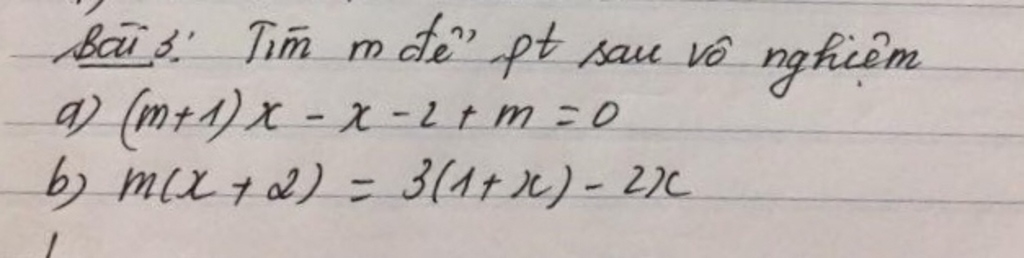 Bài 3: Tìm m để pt sau vô nghiệm
a) (m+1)x - x - 2 + m = 0
b) m(x + 2) = 3(1+x) - 2x